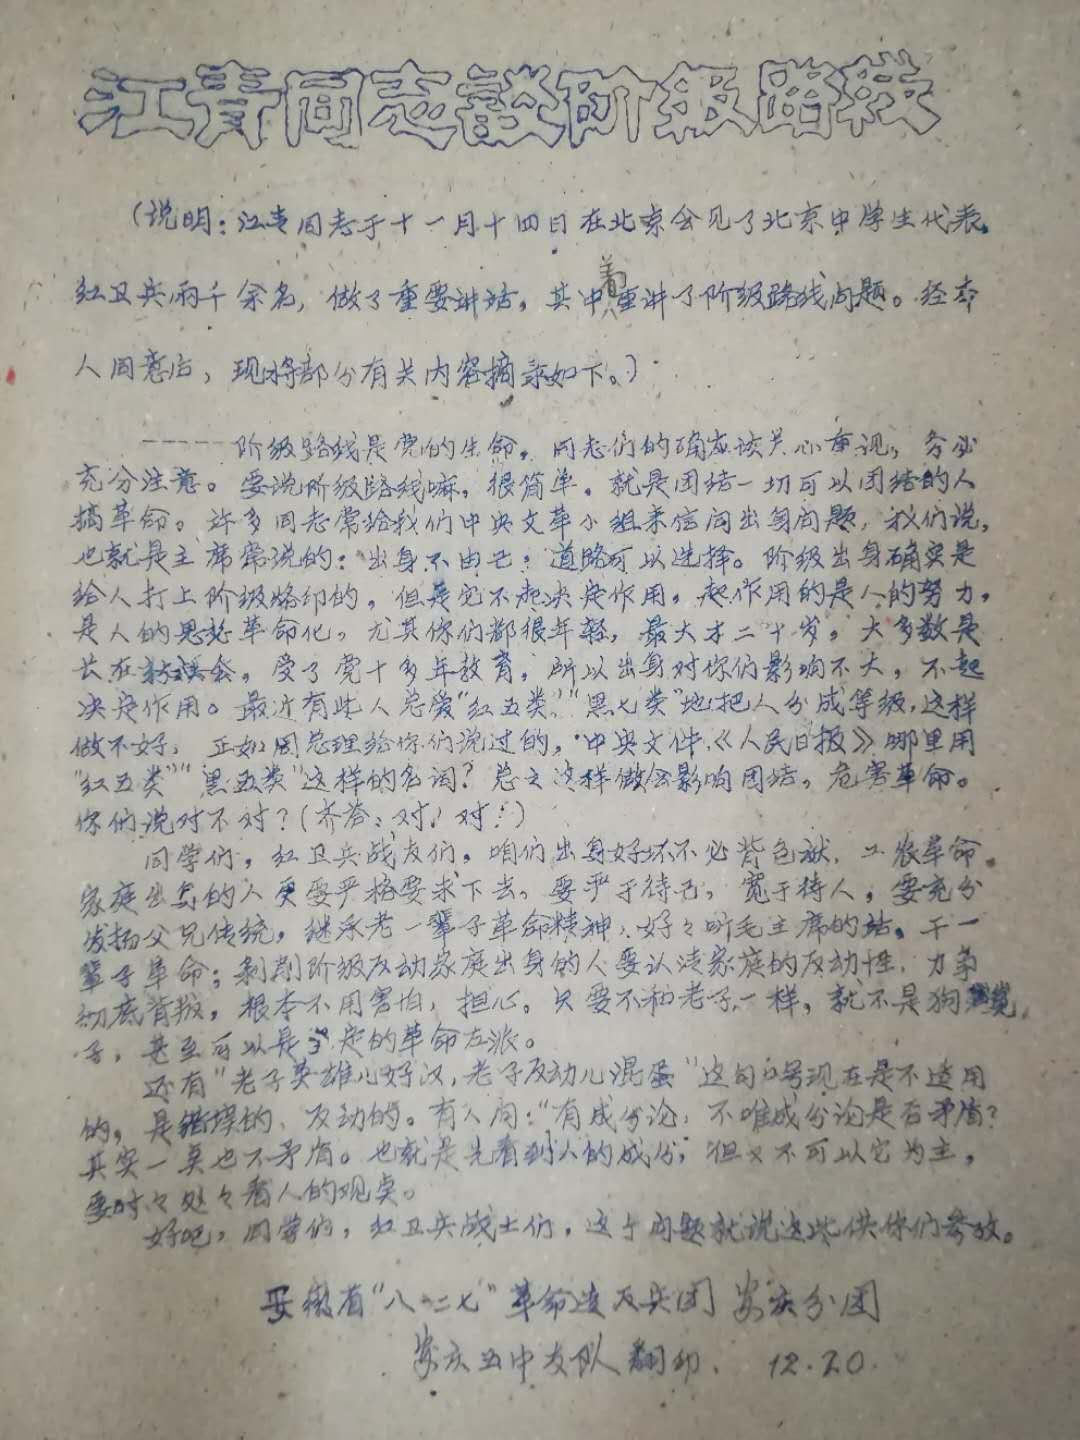 江青同志谈阶级路线
(说明:江青同志于十一月十四日在北京会见了北京中学生代表,
红卫兵两千余名,做了重要讲话,其中着重讲了阶级路线问题。经本
人同意后,现将部分有关内容摘录如下。)
-----阶级路线是党的生命,同志们的确应该关心重视,务必
充分注意。要说阶级路线嘛,很简单,就是团结一切可以团结的人
搞革命。许多同志常给我们中央文革小组来信问出身问题,我们说,
也就是主席常说的:出身不由己;道路可以选择。阶级出身确实是
给人打上阶级烙印的,但是它不起决定作用,起作用的是人的努力,
是人的思想革命化,尤其你们都很年轻,最大才二十岁,大多数是
长在新社会,受了党十多年教育,所以出身对你们影响不大,不起
决定作用。最近有些人总爱“红五类”“黑七类”地把人分成等级,这样
做不好,正如周总理给你们说过的,中央文件、《人民日报》哪里用
“红五类”“黑五类”这样的名词?总之这样做会影响团结,危害革命。
你们说对不对?(齐答:对!对!)
同学们,红卫兵战友们,咱们出身好坏不必背包袱,工农革命
家庭出身的人更要严格要求下去,要严于待己,宽于待人,要充分
发扬父兄传统,继承老一辈子革命精神,好々听毛主席的话,干一
辈子革命;剥削阶级反动家庭出身的人要认清家庭的反动性,力争
彻底背叛,根本不用害怕,担心。只要不和老子一样,就不是狗崽
子,甚至可以是坚定的革命左派。
还有“老子英雄儿好汉,老子反动儿混蛋”这句口号现在是不适用
的,是错误的、反动的。有人问:“有成分论,不唯成分论是否矛盾?
其实一点也不矛盾。也就是先看到人的成份,但又不可以它为主,
要时々处々看人的观点。
好吧,同学们,红卫兵战士们,这个问题就说这些供你们参攷。
安徽省“八·二七”革命造反兵团 安庆分团
安庆五中支队翻印. 12.20.